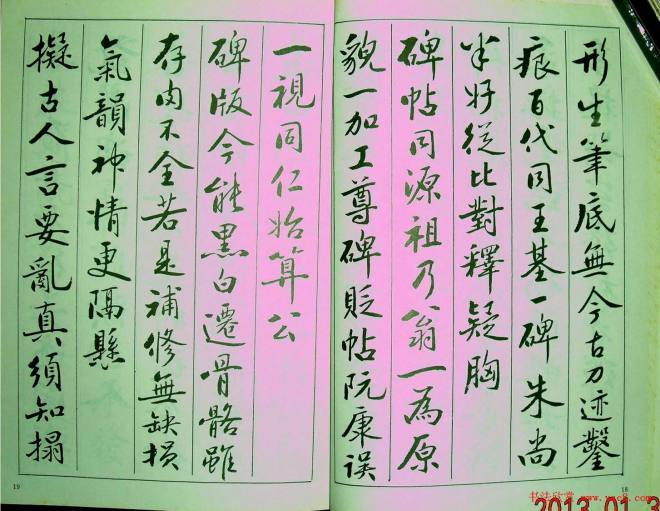 形生筆底無今古刀迹鑿
痕百代同王基一碑朱尚
半好從比對釋疑胸
碑帖同源祖乃翁一為原
貌一加工尊碑貶帖阮康誤
一視同仁始算公
碑版今能黑白遷骨骼雖
存肉不全若是補修無缺損
氣韻神情更隔懸
擬古人言要亂真須知搨
19
18
书法欣赏
2013 01 3